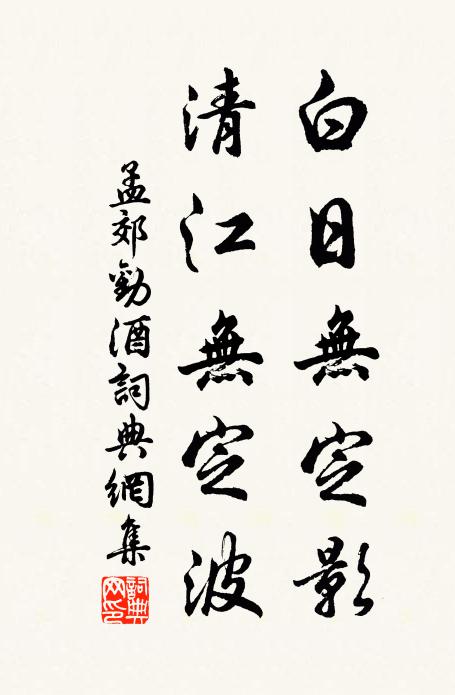 白日無定影
清江無定波
孟郊勸酒詞典網集
詞典網印